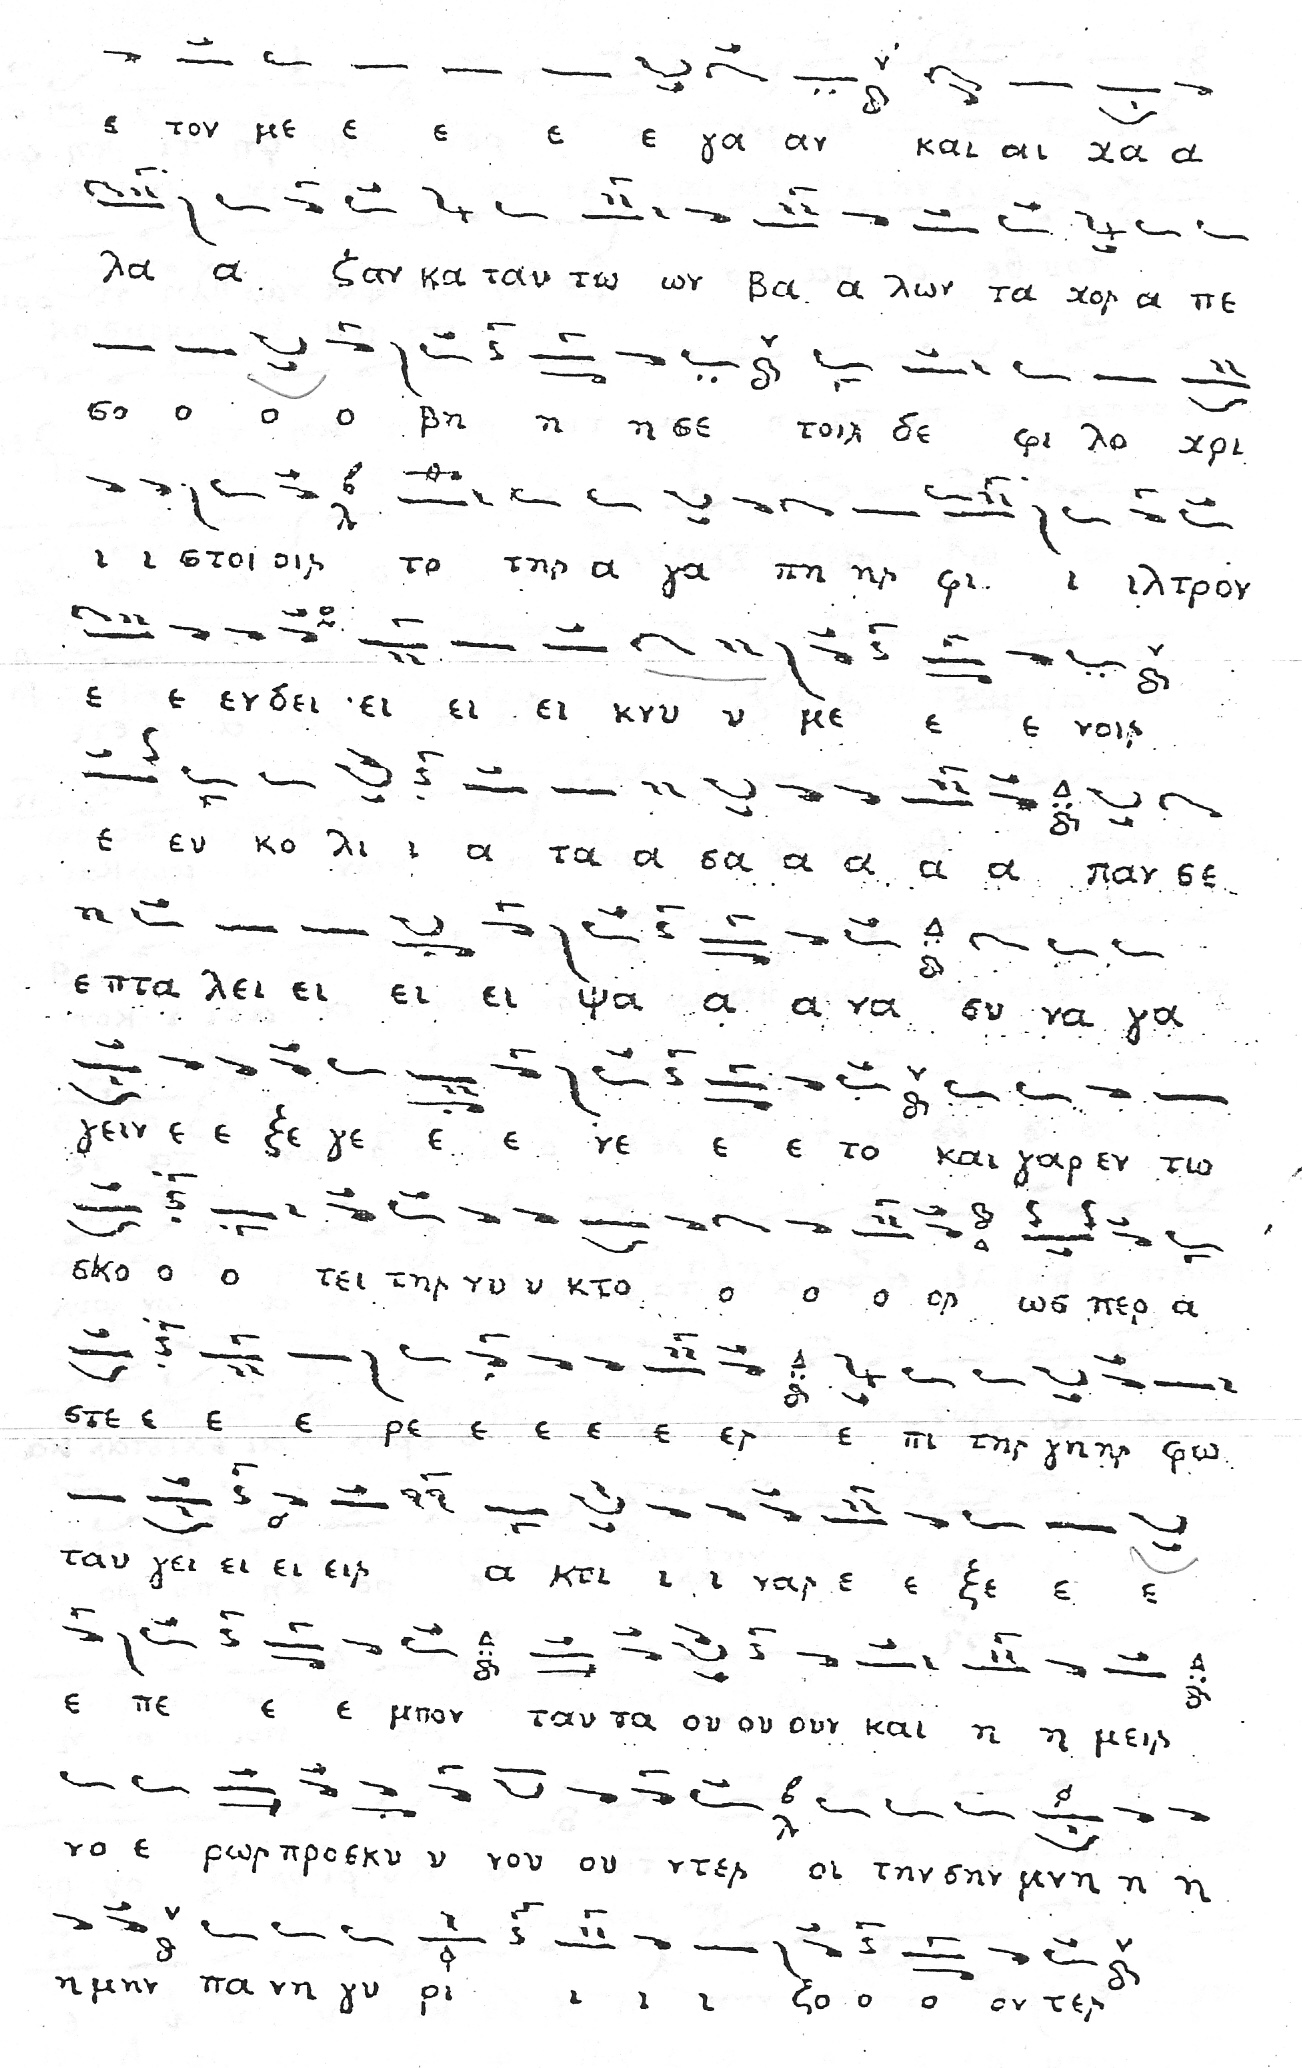 ε τον με ε ε ε ε γα αν και αι χα α
λα α ζαν κα ταυ τω ων βα α λων τα χορ α πε
σο ο ο ο βη η η σε τοις δε φι λο χρι
ι ι στοι οις το της α γα πη ης φι ι ιλτρον
ε ε ενδει ει ει ει κνυ υ με ε ε νοις
ε ευ κο λι ι α τα α σα α α α α παν σε
ε πτα λει ει ει ει ψα α α να συ να γα
γειν ε ε ξε γε ε ε νε ε ε το και γαρ εν τω
σκο ο ο τει της νυ υ κτο ο ο ο ος ωσ περ α
στε ε ε ε ρε ε ε ε ε ες ε πι της γης ης φω
ταυ γει ει ει εις α κτι ι ι νας ε ε ξε ε ε
ε πε ε ε μπον ταυ τα ου ου ουν και η η μεις
νο ε ρως προσκυ υ νου ου ντες οι την σην μνη η η
η μην πα νη γυ ρι ι ι ι ζο ο ο ον τες